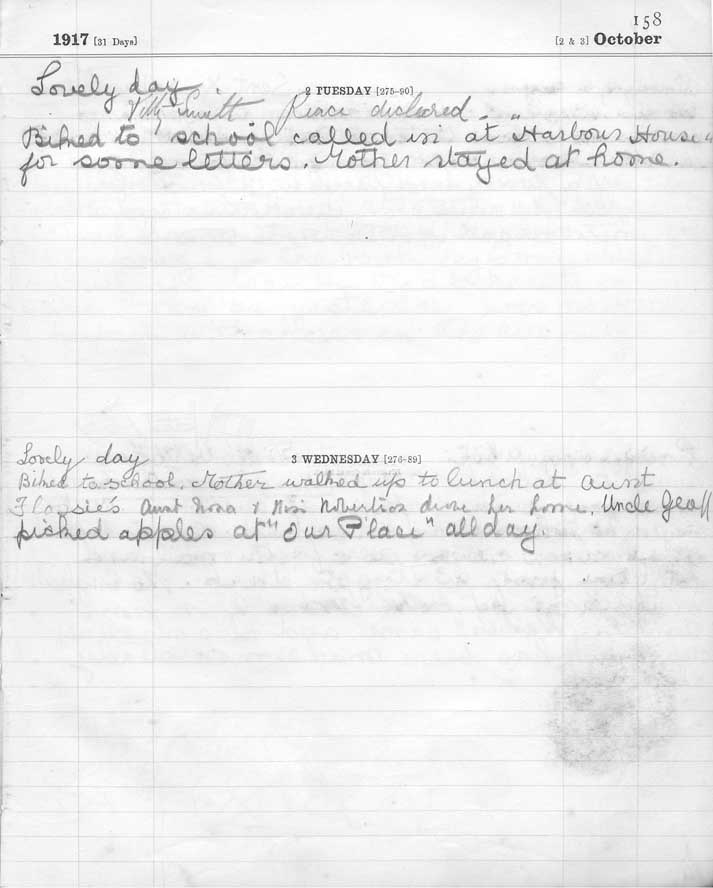 158
1917 [31 Days] [2 & 3] October
Lovely day.
2 TUESDAY [275-90]
Peace declared.
Biked to school called in at "Harbour House"
for some letters. Mother stayed at home.
Lovely day
3 WEDNESDAY [276-89]
Biked to school. Mother walked up to lunch at Aunt
Flossie's Aunt Nora & Miss Robertson drove her home. Uncle Geoff
picked apples at "Our Place" all day.